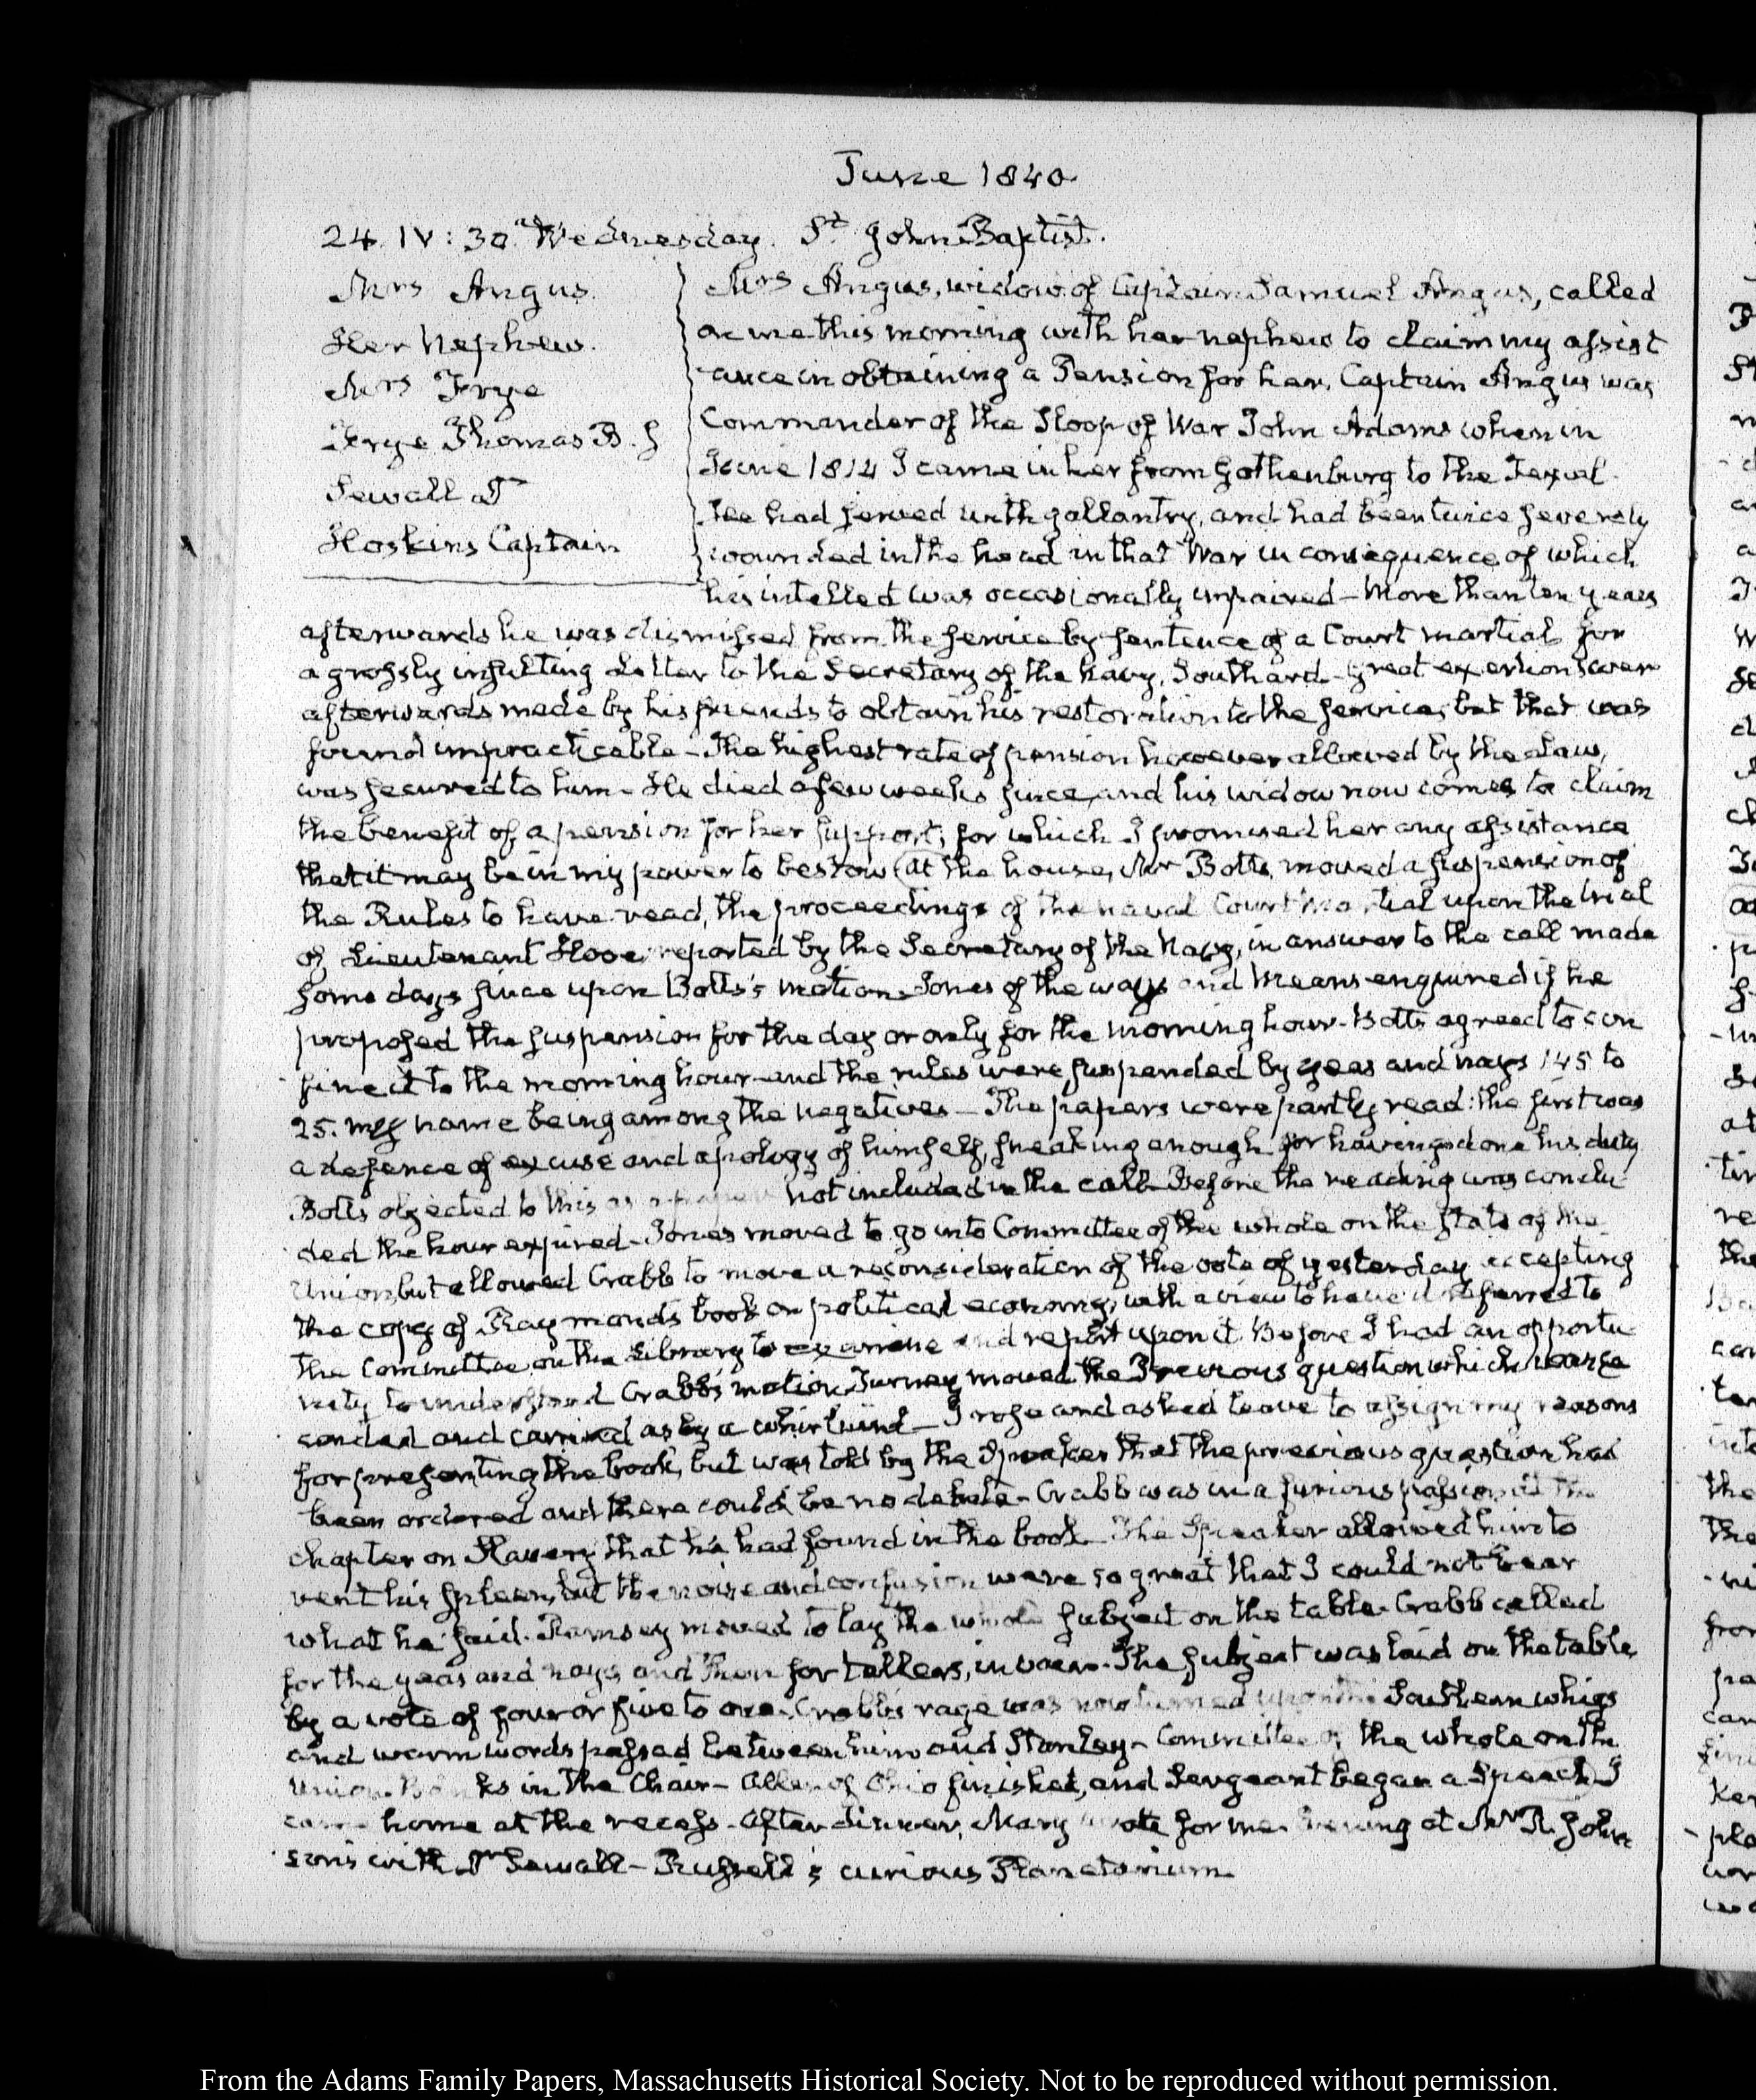 June 1840.
24. IV: 30. Wednesday. St. John Baptist.
Mrs Angus.
Her Nephew.
Mrs Frye
Frye Thomas B. J
Sewall T
Hoskins Captain
Mrs Angus, widow of Captain Samuel Angus, called
on me this morning with her nephew to claim my assist
ance in obtaining a Pension for her. Captain Angus was
Commander of the Sloop of War John Adams when in
June 1814 I came in her from Gothenburg to the Texel.
He had served with gallantry, and had been twice severely
wounded in the head in that War in consequence of which
his intellect was occasionally impaired – More than ten years
afterwards he was dismissed from the service by sentence of a Court martial for
a grossly insulting Letter to the Secretary of the Navy, Southard – Great exertions were
afterwards made by his friends to obtain his restoration to the service, but that was
found impracticable – The highest rate of pension however allowed by the Law,
was secured to him – He died a few weeks since, and his widow now comes to claim
the benefit of a pension for her support, for which I promised her any assistance
that it may be in my power to bestow (at the house, Mr Botts, moved a suspension of
the Rules to have read, the proceedings of the naval Court Martial upon the trial
of Lieutenant Hooe, reported by the Secretary of the Navy, in answer to the call made
some days since upon Botts's motion – Jones of the ways and Means enquired if he
proposed the suspension for the day or only for the morning hour – Botts agreed to con
fine it to the morning hour – and the rules were suspended by yeas and nays 145 to
25. my name being among the negatives – The papers were partly read: the first was
a defence of excuse and apology of himself, sneaking enough for having done his duty
Botts objected to this as a paper not included in the call – Before the reading was conclu
ded the hour expired – Jones moved to go into Committee of the whole on the state of the
Union, but allowed Crabb to move a reconsideration of the vote of yesterday accepting
the copy of Raymond's book on political economy, with a view to have it referred to
the Committee on the Library to examine and report upon it. Before I had an opportu
nity to understand Crabb's motion, Turney moved the Previous question which was se
conded and carried as by a whirlwind – I rose and asked leave to assign my reasons
for presenting the book, but was told by the Speaker that the previous question had
been ordered and there could be no debate – Crabb was in a furious passion at the
chapter on Slavery that he had found in the book – The Speaker allowed him to
vent his spleen, but the noise and confusion were so great that I could not hear
what he said. Ramsey moved to lay the whole subject on the table – Crabb called
for the yeas and nays, and then for tellers, in vain – The subject was laid on the table
by a vote of four or five to one. Crabb's rage was now turned upon the Southern whigs
and warm words passed between him and Stanley – Committee of the whole on the
Union. Banks in the Chair – Allen of Ohio finished, and Sergeant began a Speech) I
came home at the recess – After dinner, Mary wrote for me – Evening at Mr R. John
son's with Dr Sewall – Russell's curious Planetarium
From the Adams Family Papers, Massachusetts Historical Society. Not to be reproduced without permission.